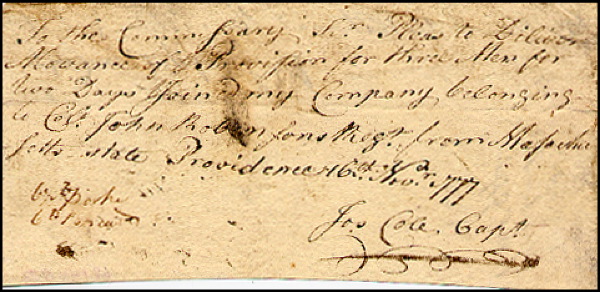 To the Commissary Sr. Pleas to Diliver
Alowance of Provission for three Men for
two Days Joined my Company belonging
to Col. John Robinsons Regt. from Massachu
setts state Providence 16th Novr. 1777
Jos Cole Capt.